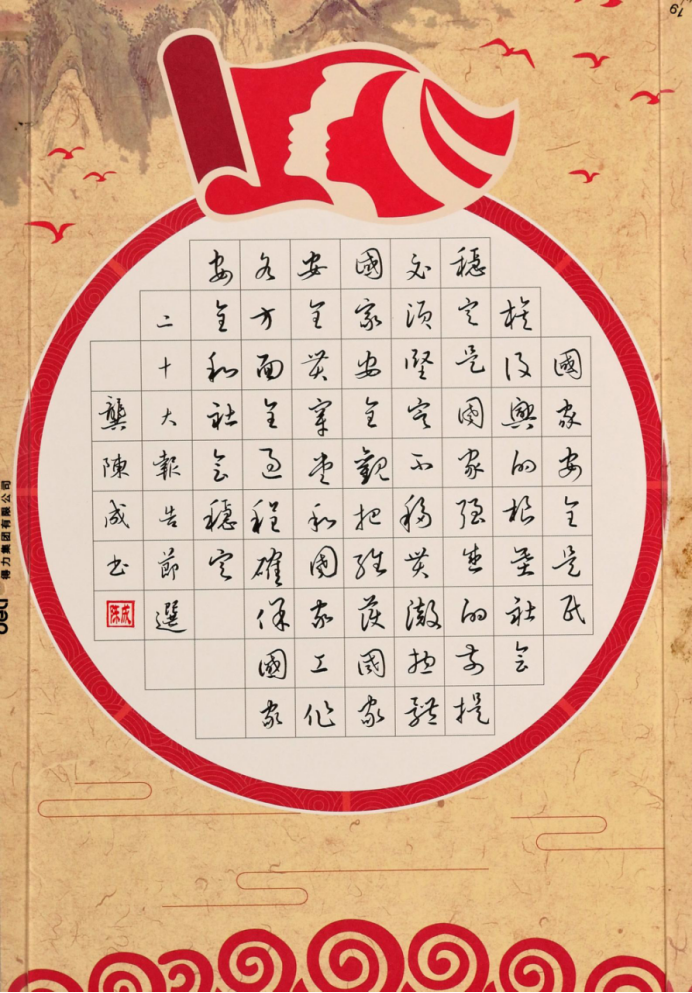 國家安全是民
族復興的根基社會
穩定是國家强盛的前提
必須堅定不移貫徹總體
國家安全觀把維護國家
安全貫穿黨和國家工作
各方面全過程確保國家
安全和社會穩定
二十大報告節選
龔陳成书
得力集团有限公司
deli